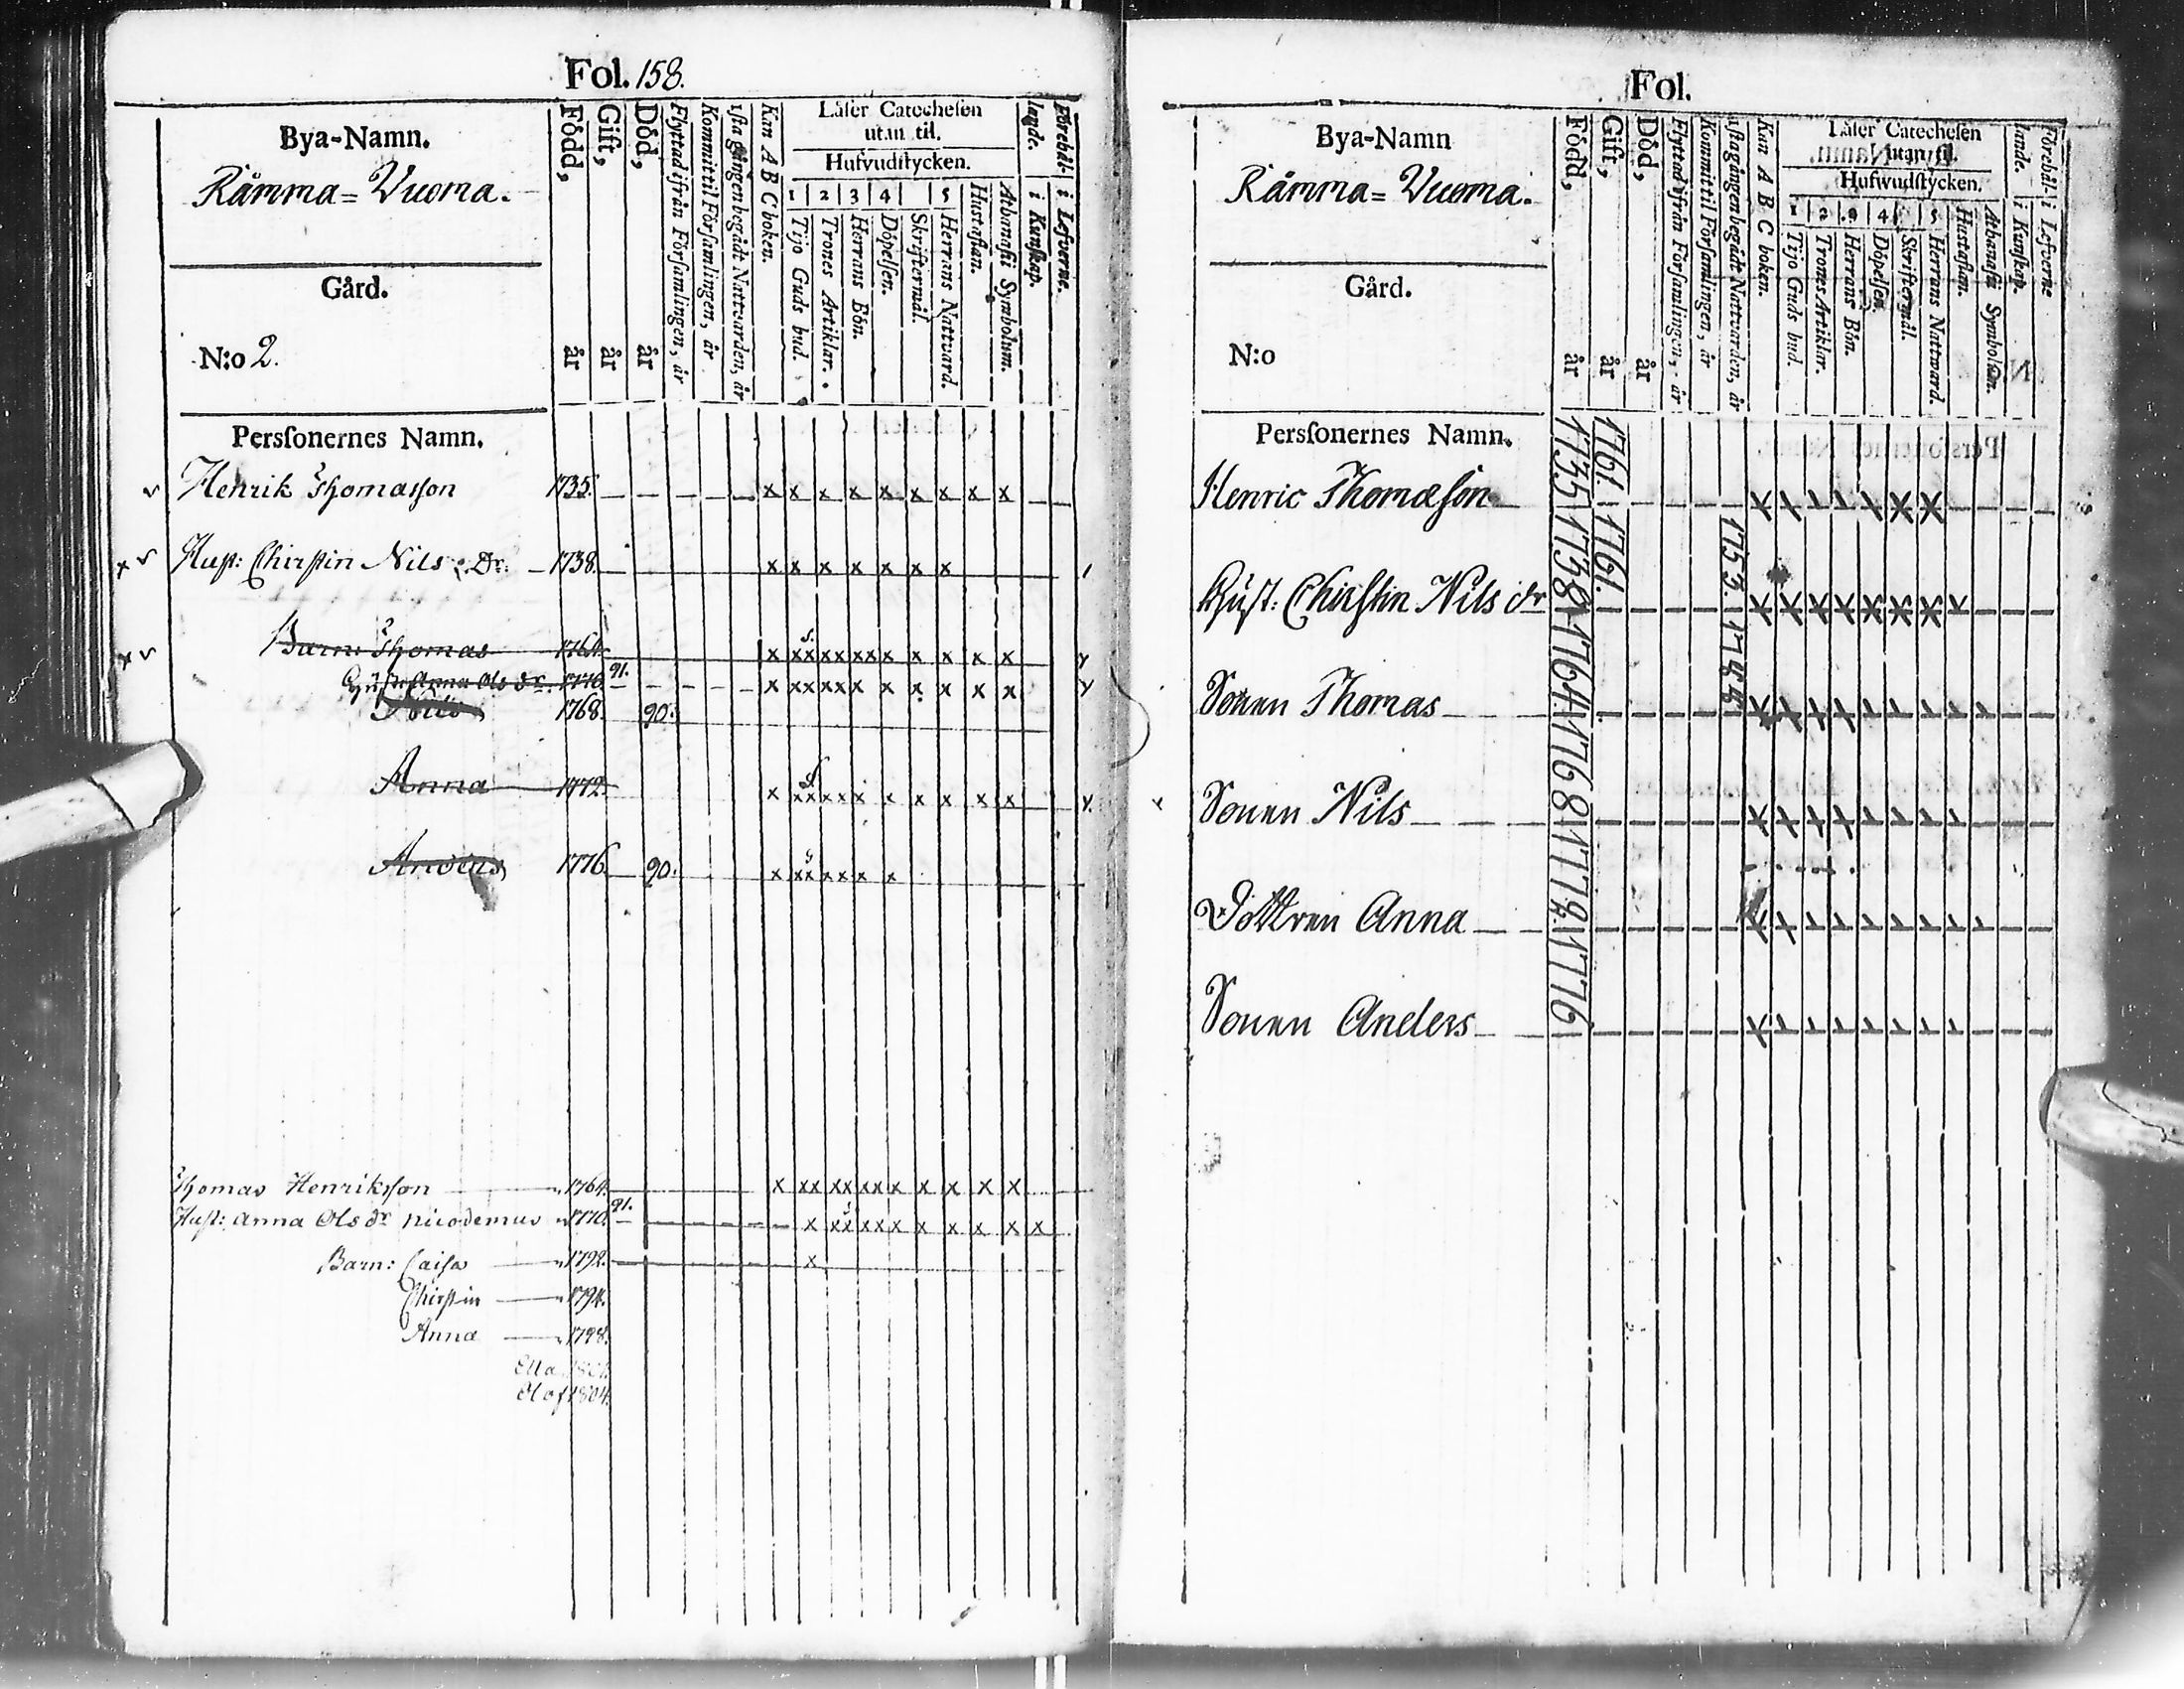 Fol. 158.
Bya-Namn.
Råmma= Vuoma.
Gård.
N:o 2.
Född, år
Gift, år
Död, år
Flyttad ifrån Församlingen, år
Kommit til Församlingen, år
ista gången begådt Nattvarden, år
Kan A B C boken.
Läser Catechesen
utan til.
Hufvudstycken.
1 2 3 4 5
Tijo Guds bud.
Trones Artiklar.
Herrans Bön.
Döpelsen.
Skriftermål.
Herrans Nattvard.
Hustaflan.
Athanasii Symbolum.
Förehål-
lande.
i Kunskap.
i Lefverne.
Personernes Namn.
Henrik Thomasson 1735. x x x x x x x x x
Hust: Chirstin Nils Dr. 1738. x x x x x x x
Barn: Thomas 1764. x xx xx xx x x x x x
Hust: Anna Ols dr. 1770. 91. x xx xx x x x x x x
Nils 1768. 90.
Anna 1772. x xx x x x x x x x x
Anders 1776. 90. x xx x x x x
Thomas Henriksson 1764. x xx xx xx x x x x x
Hust: Anna Ols dr Nicodemus 1770. 91. x xx xx x x x x x x
Barn: Caisa 1792. x
Chirstin 1794.
Anna 1798.
Ella 1801.
Olof 1804.
Fol.
Bya-Namn
Råmma= Vuoma.
Gård.
N:o
Född, år
Gift, år
Död, år
Flyttad ifrån Församlingen, år
Kommit til Församlingen, år
ista gången begådt Nattvarden, år
Kan A B C boken.
Läser Catechesen
utan til.
Hufwudstycken.
1 2 3 4 5
Tijo Guds bud.
Trones Artiklar.
Herrans Bön.
Döpelsen.
Skriftermål.
Herrans Nattward
Hustaflan.
Athanasii Symbolum.
Förehål-
lande.
i Kunskap.
i Lefverne
Personernes Namn.
Henric Thomæson 1735 1761.
Hust: Chirstin Nils dr 1738 1761. 1753.
Sonen Thomas 1764
Sonen Nils 1768
Dottren Anna 1772
Sonen Anders 1776